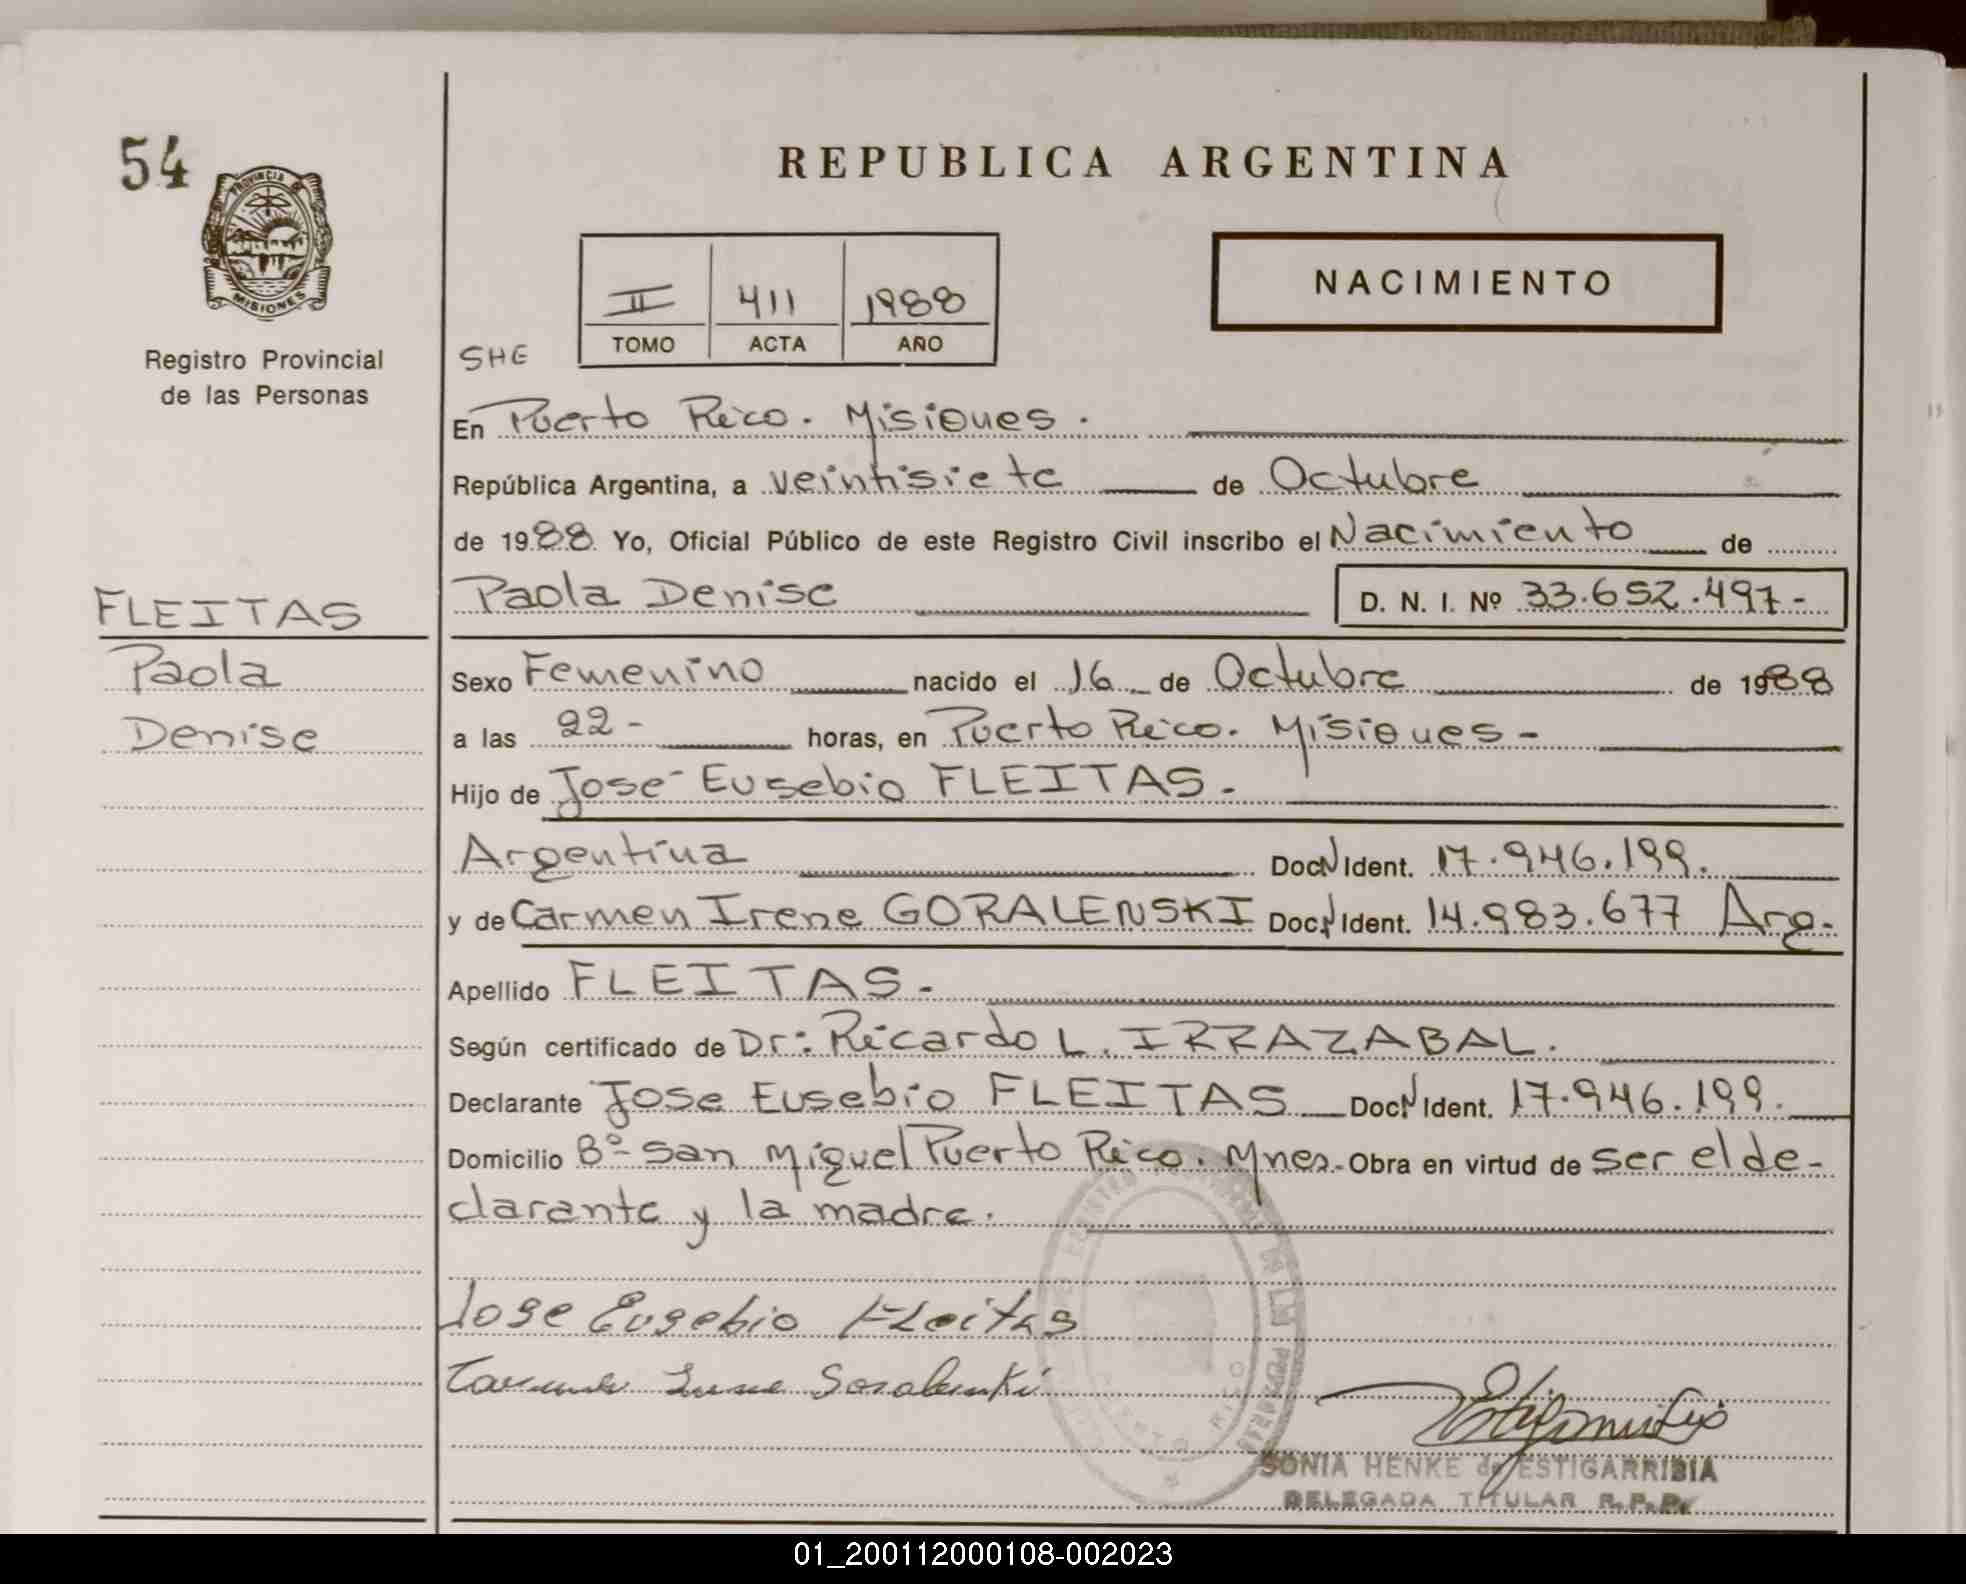 54
PROVINCIA DE
MISIONES
Registro Provincial
de las Personas
REPUBLICA ARGENTINA
II 411 1988
TOMO ACTA AÑO
NACIMIENTO
SHE
En Puerto Rico. Misiones.
República Argentina, a veintisiete de Octubre
de 1988 Yo, Oficial Público de este Registro Civil inscribo el Nacimiento de
FLEITAS
Paola
Denise
Paola Denise D. N. I. Nº 33.652.497-
Sexo Femenino nacido el 16 de Octubre de 1988
a las 22- horas, en Puerto Rico. Misiones-
Hijo de José Eusebio FLEITAS.
Argentina Doc N Ident. 17.946.199.
y de Carmen Irene GORALENSKI Doc N Ident. 14.983.677 Arg.
Apellido FLEITAS.
Según certificado de Dr: Ricardo L. IRRAZABAL.
Declarante Jose Eusebio FLEITAS Doc N Ident. 17.946.199.
Domicilio Bº San Miguel Puerto Rico. Mnes. Obra en virtud de ser el de-
clarante y la madre.
Jose Eusebio Fleitas
Carmen Irene Goralenski
PUERTO RICO
SONIA HENKE de ESTIGARRIBIA
DELEGADA TITULAR R.P.P.
01_200112000108-002023